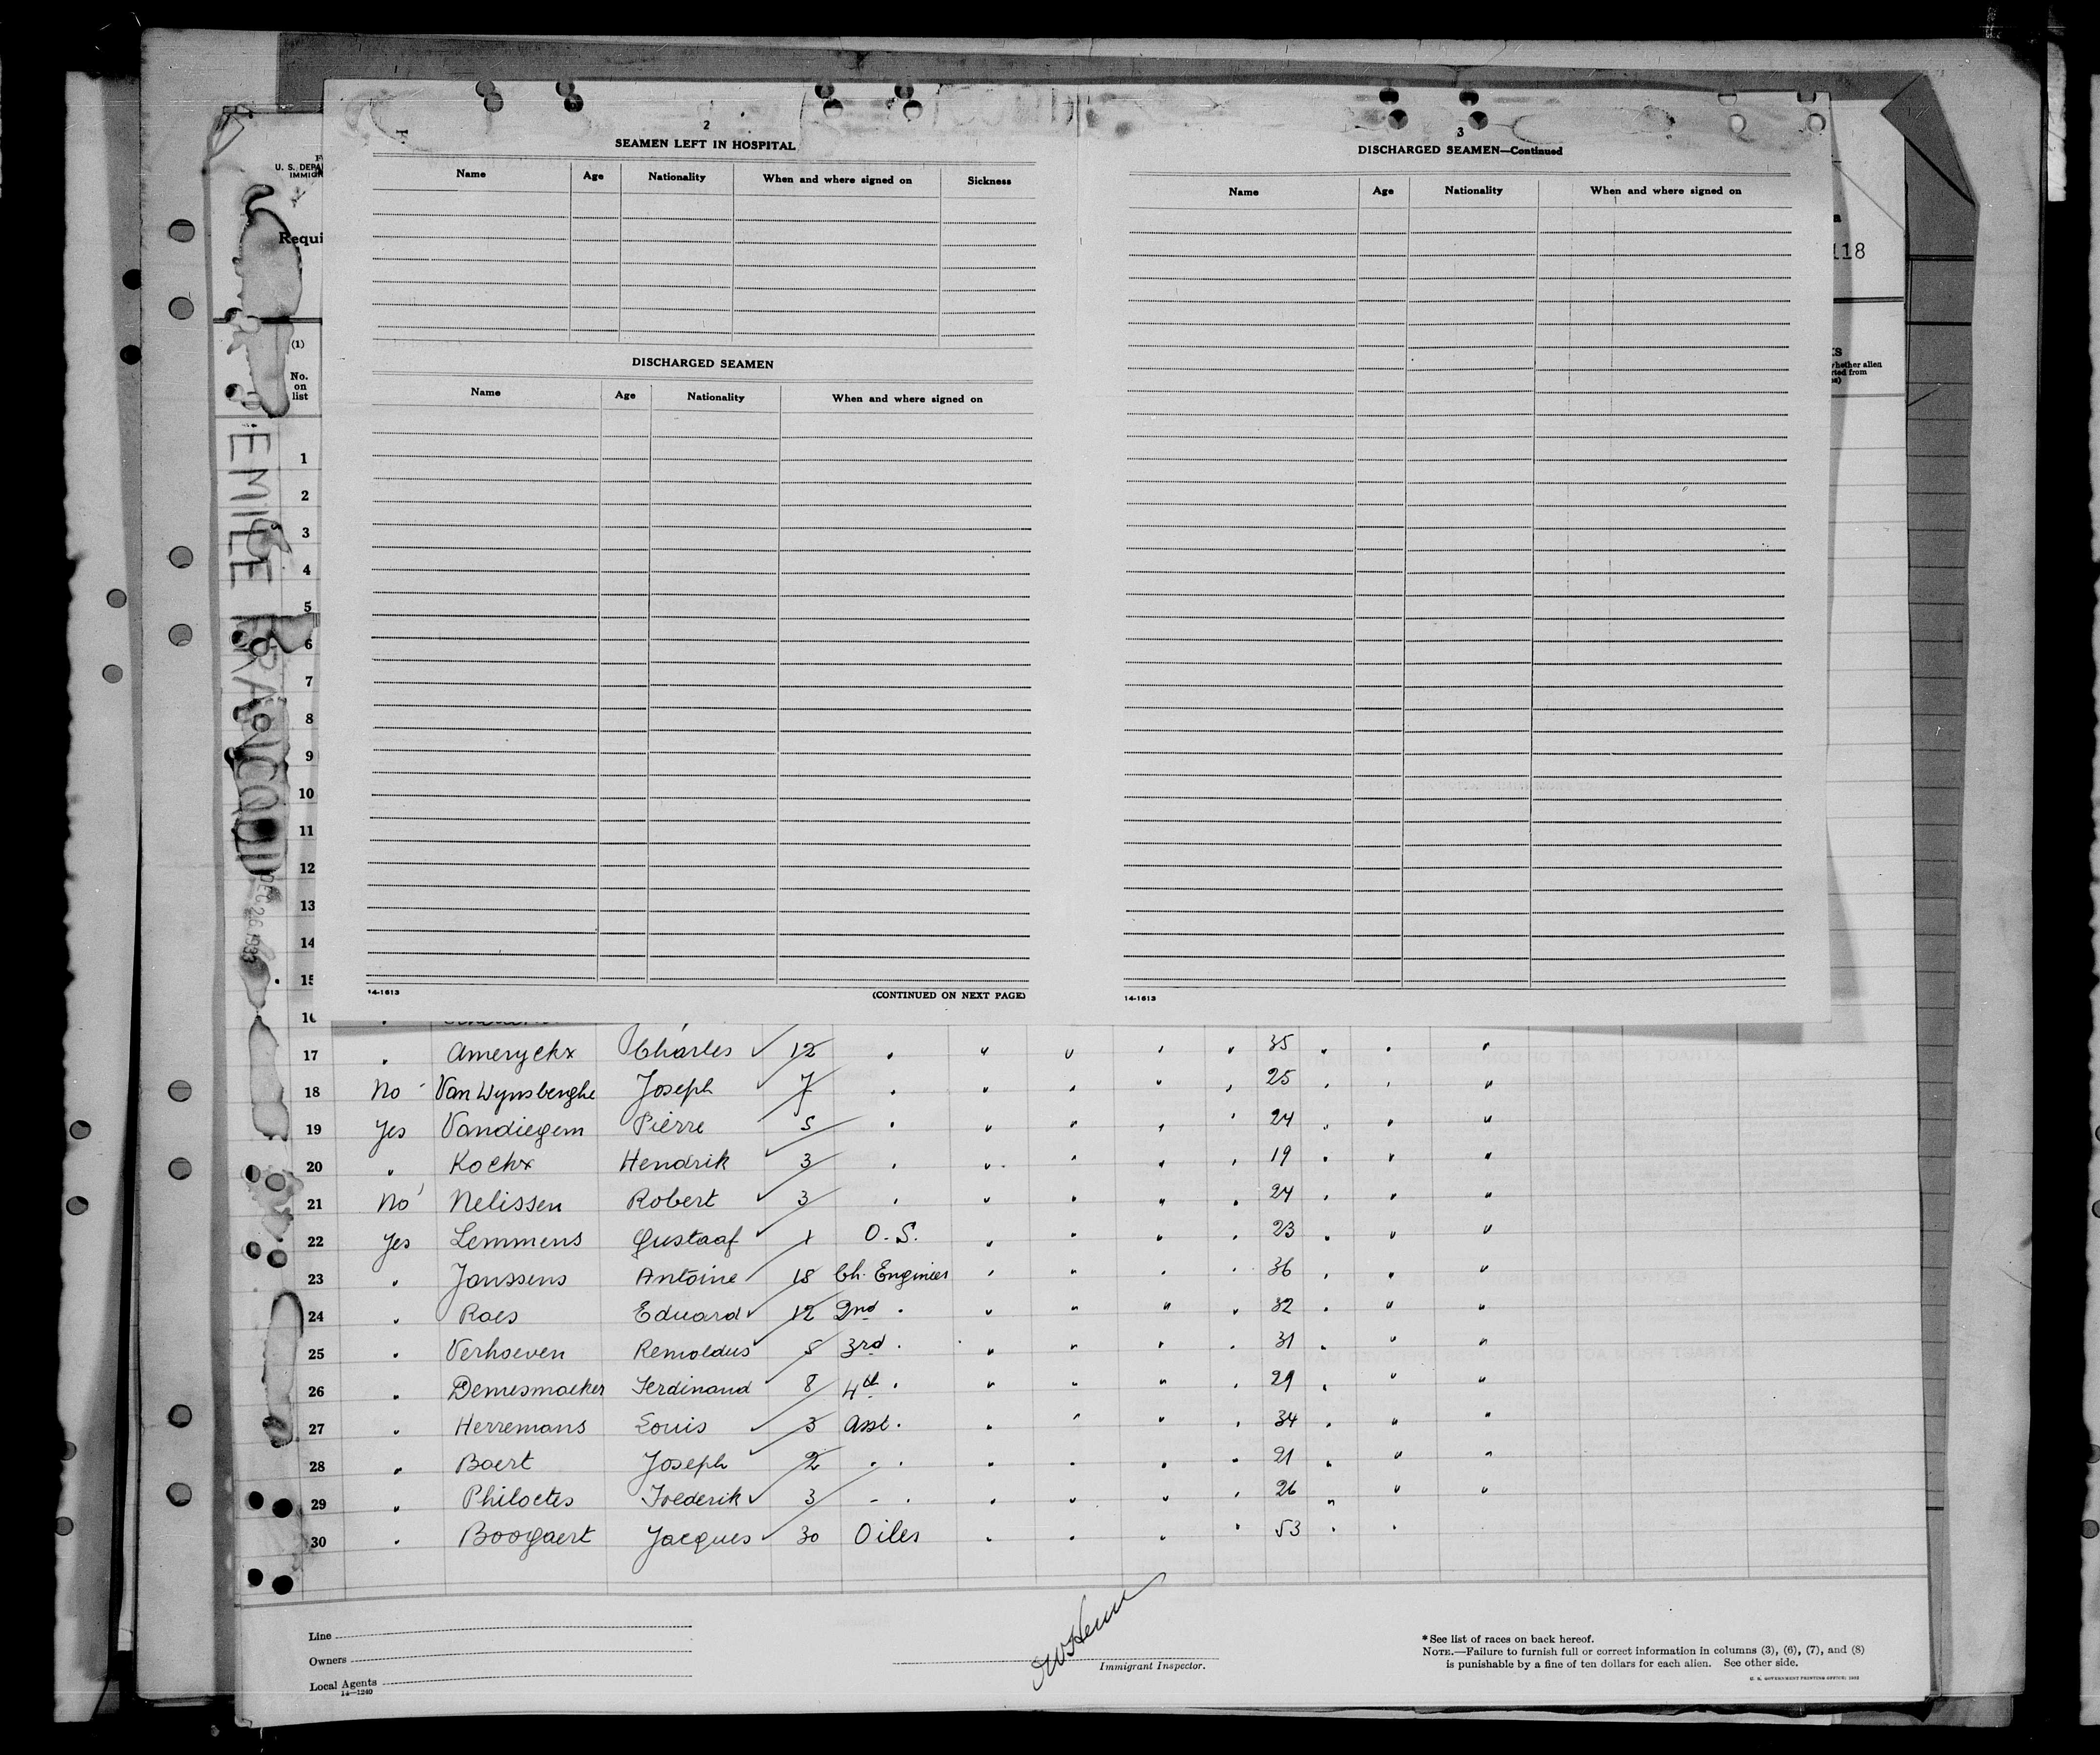 2
SEAMEN LEFT IN HOSPITAL
Name Age Nationality When and where signed on Sickness
DISCHARGED SEAMEN
Name Age Nationality When and where signed on
14-1613 (CONTINUED ON NEXT PAGE)
3
DISCHARGED SEAMEN—Continued
Name Age Nationality When and where signed on
14-1613
U. S. DEPA
IMMIG
Requi
118
(1)
No.
on
list
whether alien
EMILE FRANCQUI
DEC 26 1933
1
2
3
4
5
6
7
8
9
10
11
12
13
14
15
16
17 "Ameryckx Charles ✓ 12 " " " " " 35 " " "
18 No Van Wynsberghe Joseph ✓ 7 " " " " " 25 " " "
19 Yes Vandiegem Pierre 5 " " " " " 24 " " "
20 " Kockx Hendrik ✓ 3 " " " " " 19 " " "
21 No Nelissen Robert ✓ 3 " " " " " 24 " " "
22 Yes Lemmens Gustaaf ✓ 1 O.S. " " " " 23 " " "
23 " Janssens Antoine ✓ 18 Ch. Engineer " " " " 36 " " "
24 " Raes Eduard ✓ 12 2nd " " " " " 32 " " "
25 " Verhoeven Remoldus ✓ 5 3rd " " " " " 31 " " "
26 " Demesmaeker Ferdinand ✓ 8 4th " " " " " 29 " " "
27 " Herremans Louis ✓ 3 Asst. " " " " 34 " " "
28 " Baert Joseph ✓ 2 " " " " " " 21 " " "
29 " Philoctes Frederik ✓ 3 " " " " " " 26 " " "
30 " Boogaert Jacques ✓ 30 Oiler " " " " 53 " "
Line
Owners
Local Agents
14—1240
Immigrant Inspector.
*See list of races on back hereof.
NOTE.—Failure to furnish full or correct information in columns (3), (6), (7), and (8)
is punishable by a fine of ten dollars for each alien. See other side.